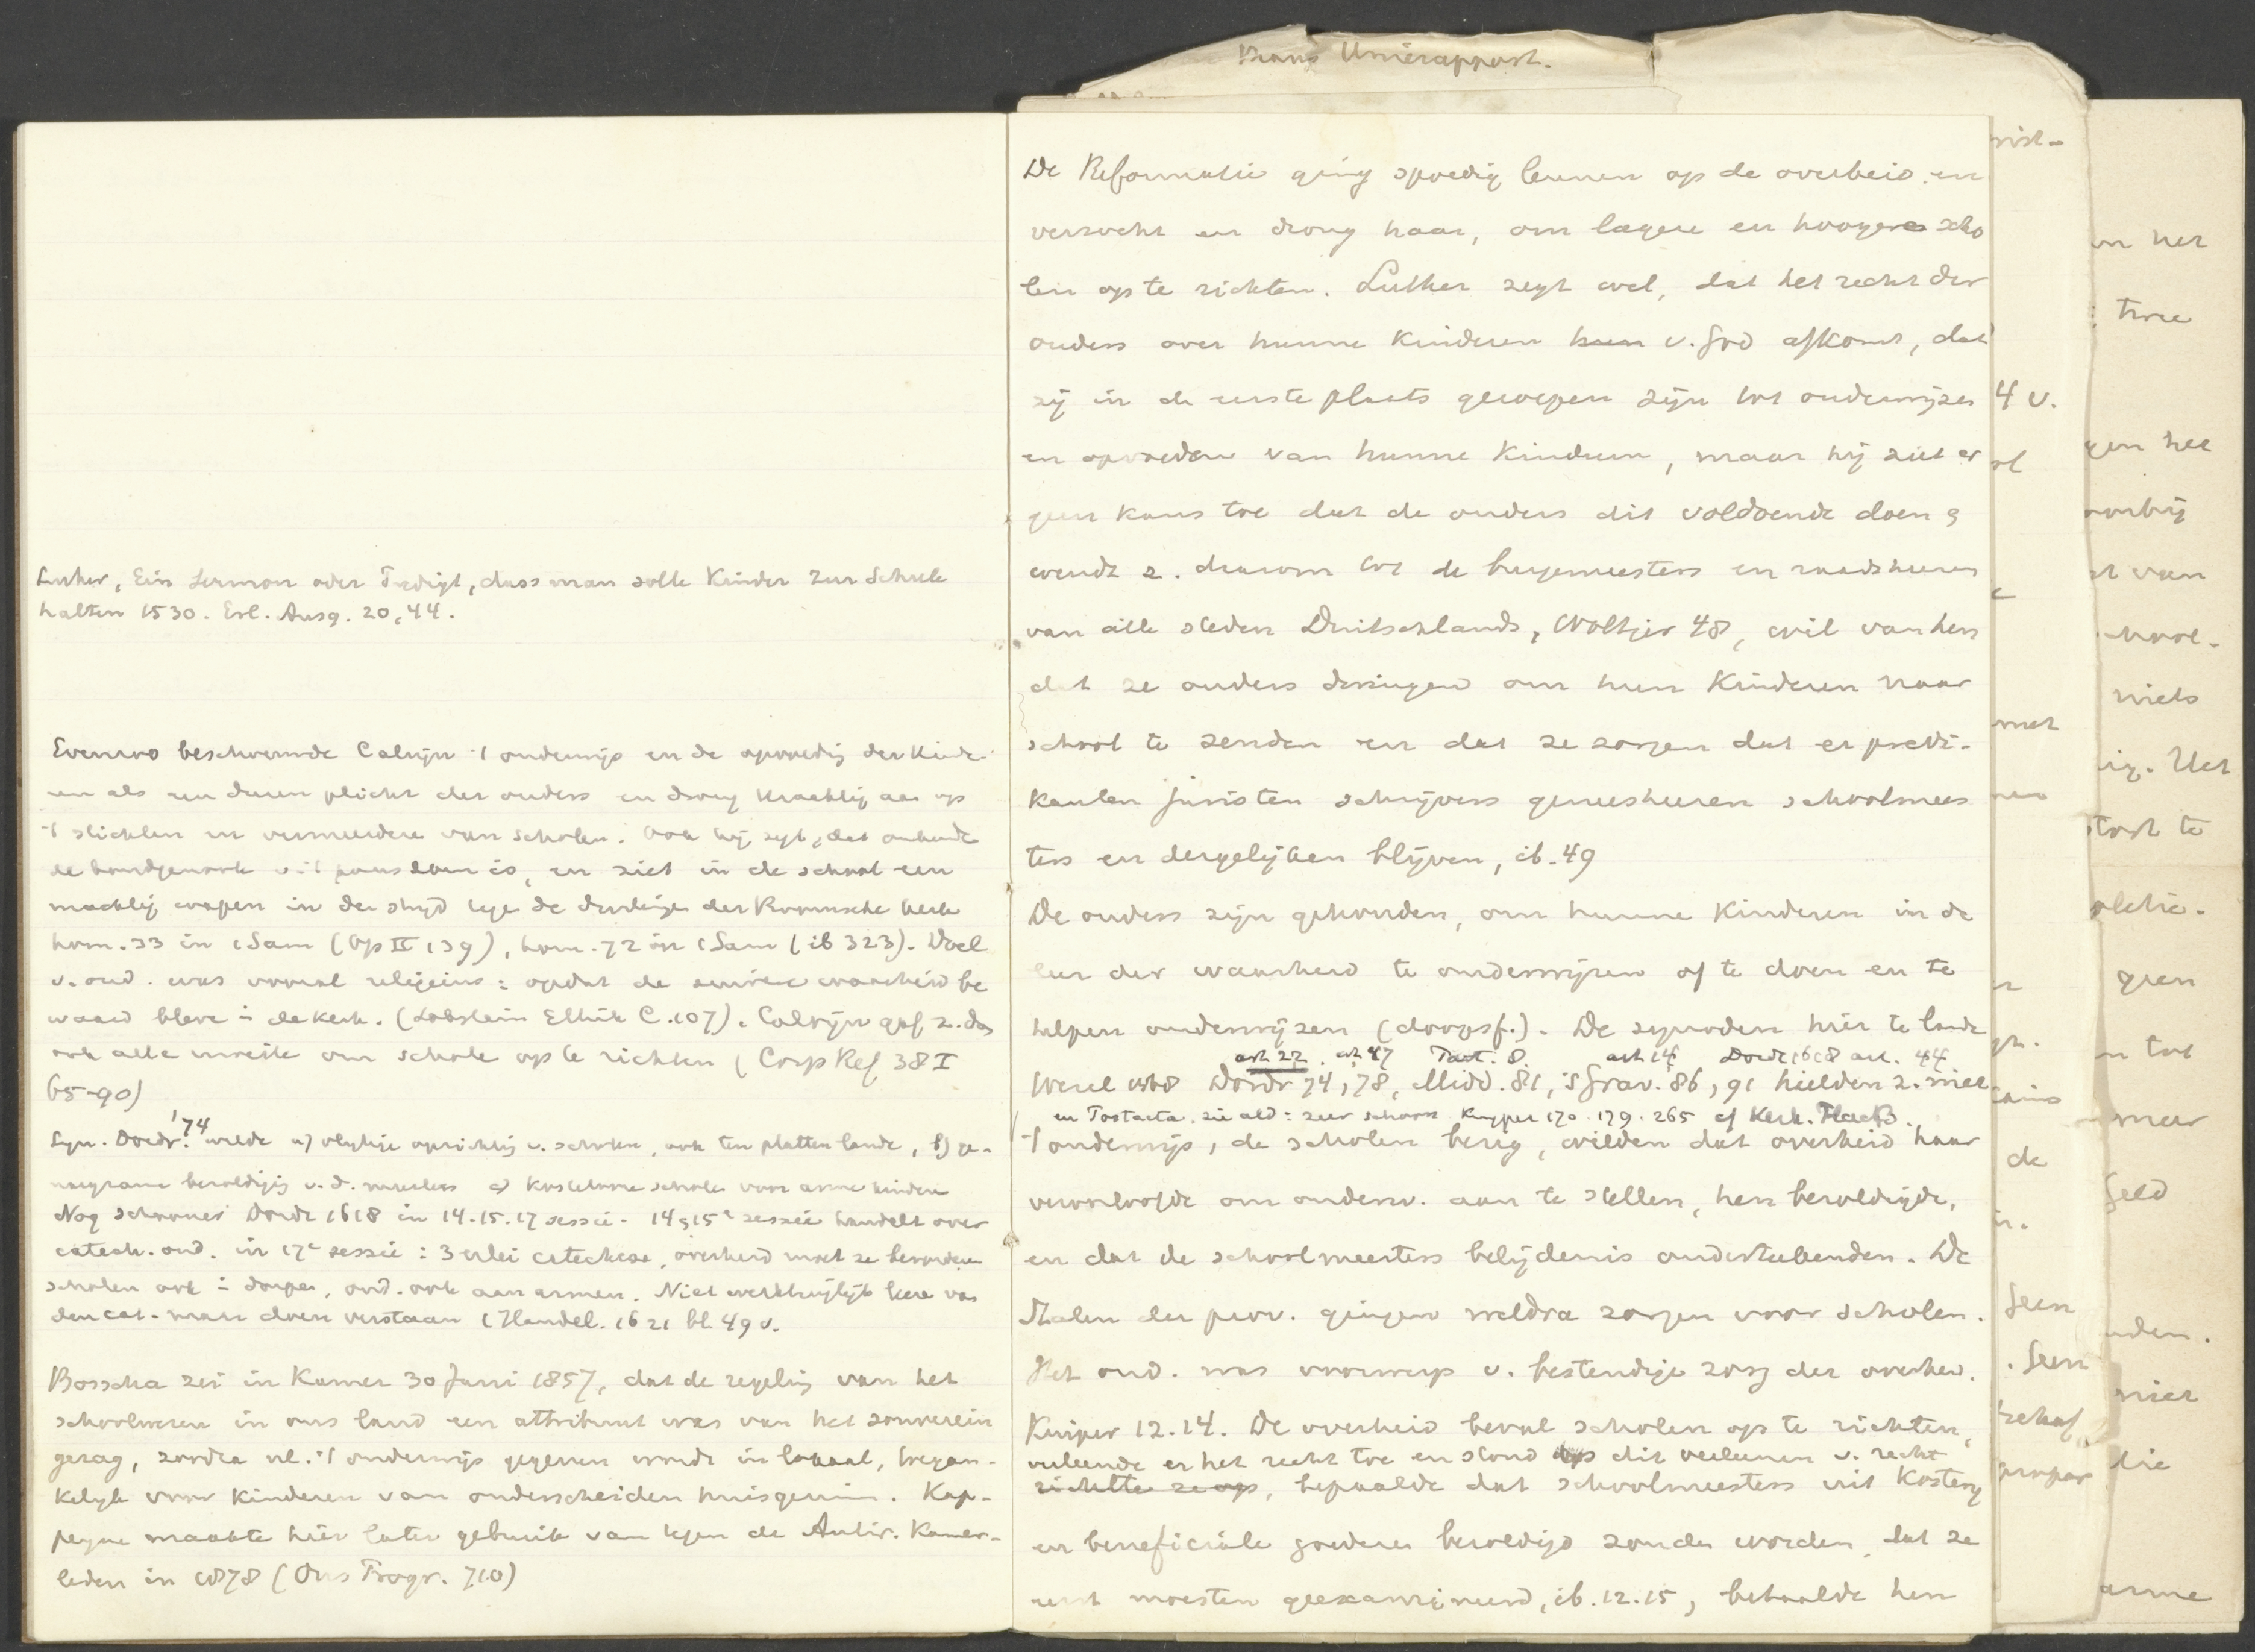 Luther, Ein Sermon oder Predigt, dass man solle Kinder zur Schule
halten 1530. Erl. Ausg. 20,44.
Evenzoo beschouwde Calvijn 't onderwijs en de opvoedig der Kinde-
ren als een duren plicht der ouders en drong krachtig aan op
't stichten en vermeerdere van scholen. Ook hij zegt, dat onkunde
de bondgenoote v. 't pausdom is, en ziet in de school een
machtig wapen in den strijd tege de dwalinge der Roomsche kerk
hom. 33 in 1 Sam (Op II 139), hom. 72 in 1 Sam (ib 323). Doel
v. ond. was vooral religieus: opdat de zuivere waarheid be
waard bleve in de kerk. (Lobstein Ethik C. 107). Calvijn gaf z. dan
ook alle moeite om schole op te richten (Corp Ref 38 I
65-90)
Syn. Dordr. '74 wilde a) oprichtig v. scholen, ook ten platten lande, b) ge-
noegzame bezoldigig v. d. meesters c) kostelooze scholen voor arme kindere
Nog schooner Dordt 1618 in 14.15.17 sessie. 14 & 15e sessie handelt over
catech. ond. in 17e sessie: 3 erlei catechese, overheid moet ze bevordere
scholen ook in dorpen, ond. ook aan armen. Niet werktuiglijk leere van
den cat. maar doen verstaan (Handel. 1621 bl. 49 v.
Bosscha zei in Kamer 30 Juni 1857, dat de regelig van het
schoolwezen in ons land een attribuut was van het souverein
gezag, zoodra nl. 't onderwijs gegeven wordt in lokaal, toegan-
kelijk voor kinderen van onderscheiden huisgezinn. Kap-
peyne maakte hier later gebruik van tegen de Antir. Kamer-
leden in 1878 (Ons Progr. 710)
Kranz Unierapport.
De Reformatie ging spoedig leunen op de overheid en
verzocht en drong haar, om lagere en hoogere scho
len op te richten. Luther zegt wel, dat het recht der
ouders over hunne Kinderen hun v. God afkomt, dat
zij in de eerste plaats geroepen zijn tot onderwijzen
en opvoeden van hunne Kinderen, maar hij ziet er
geen kans toe dat de ouders dit voldoende doen &
wendt z. daarom tot de burgemeesters en raadsheeren
van alle steden Duitschlands, Woltjer 48, wil van hen
dat ze ouders dwingen om hun Kinderen naar
school te zenden en dat ze zorgen dat er predi-
kanten juristen schrijvers geneesheeren schoolmees
ters en dergelijken blijven, ib. 49
De ouders zijn gehouden, om hunne Kinderen in de
leer der waarheid te onderwijzen of te doen en te
helpen onderwijzen (doopsf.). De synoden hier te lande
art 22. art 47 Part. 8. art 14 Dordt 1618 art. 44
Wesel 1568 Dordr 74, 78, Midd. 81, 's Grav. 86, 91 hielden z. met
en Postacta. zie ald: zeer schoon Kuyper 170. 179. 265 cf Kerk.
't onderwijs, de scholen bezig, wilden dat overheid haar
veroorloofde om onderw. aan te stellen, hen bezoldigde,
en dat de schoolmeesters belijdenis onderteekenden. De
Staten der prov. gingen weldra zorgen voor scholen.
Het ond. was voorwerp v. bestendige zorg der overheid.
Kuiper 12.14. De overheid beval scholen op te richten,
verleende er het recht toe en stond op dit verleenen v. recht
richtte ze op, bepaalde dat schoolmeesters uit Kosterij
en beneficiale goederen bezoldigd zouden worden, dat ze
eerst moesten geexamineerd, ib. 12.15, betaalde hen
4 v.
met
de
Geen
. Geen
behoef
propar
en het
twee
gen het
voorbij
st van
niets
ig. Het
geen
n tot
meer
Geld
nden.
niet
die
arme